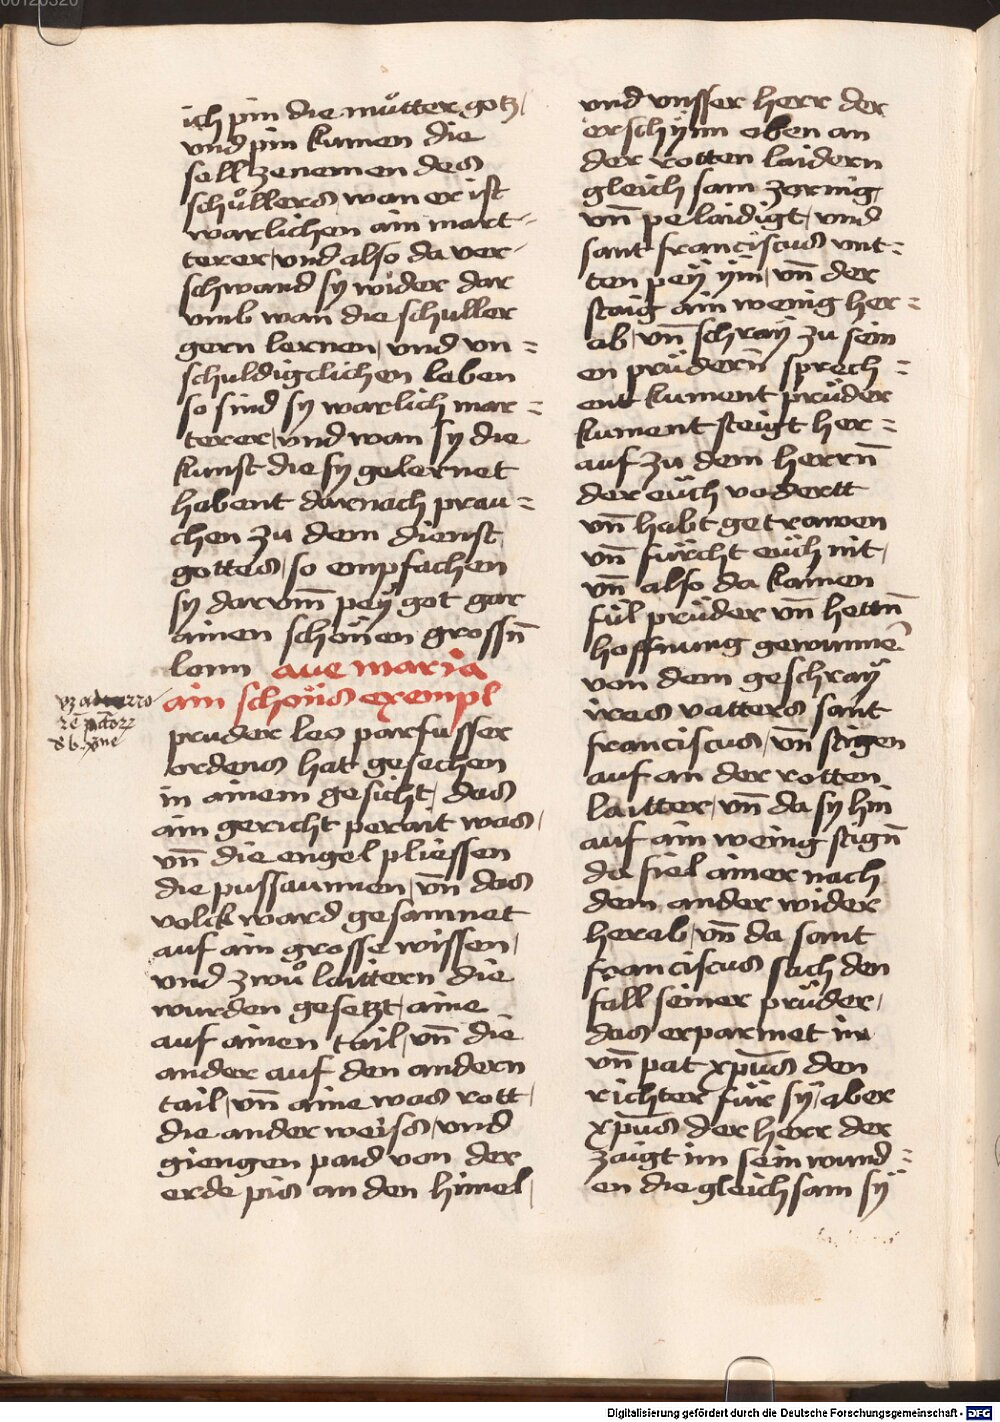 ich pin die muͦtter gotz
vnd pin kumen die
sell zenemen des
schuͦllers wan er ist
warlichen ain mart-
terer vnd also da ver-
schwand sy wider dar
vmb wan die schuller
gern lernen vnd vn=
schuldigclichen leben
so sind sy warlich mar=
terer vnd wan sy die
kunst die sy gelernet
habent darnach prau=
chen zu dem dienst
gottes so empfachen
sy darvm̄ peÿ got gar
ainen schönen grossn̄
lonn aue maria
ain schöns exempl
pruder leo parfusser
ordens hat gesechen
in ainem gesicht das
ain gericht perait was
vn̄ die engel pliessen
die pussaunnen vn̄ das
volck ward gesamnet
auf ain grosse wissen
vnd zwuͦ laittern die
wurden gesetzt aine
auf ainen tail vn̄ die
ander auf den andern
tail vn̄ aine was rott
die ander weiss vnd
giengen paid von der
erde pis an den himel
vnd vnsser herr der
erschÿnn oben an
der rotten laidern
gleich sam zornig
vn̄ pelaidigt vnd
sant franciscus vnt=
ten peÿ ÿm vn̄ der
staig ain wenig her=
ab vn̄ schraÿ zu sein
en prüdern̄ sprech=
ent kument prüder
kument steigt her=
auf zu dem herrn̄
der eüch vodertt
vn̄ habt getrawen
vn̄ fürcht eüch nit
vn̄ also da kamen
fül prüder vn̄ hettn̄
hoffnung gewunne̅
von dem geschraÿ
ires vatters sant
franciscus vn̄ stigen
auf an der rotten
laitter vn̄ da sy hin
auf ain weing stign̄
da fiel ainer nach
dem ander wider
herab vn̄ da sant
franciscus sach den
fall seiner prüder
das erparmet in
vn̄ pat xp̄us den
richter für sÿ aber
xp̄us der herr der
zaigt im sein wund=
en die gleich sam sÿ
Digitalisierung gefördert durch die Deutsche Forschungsgemeinschaft - DFG